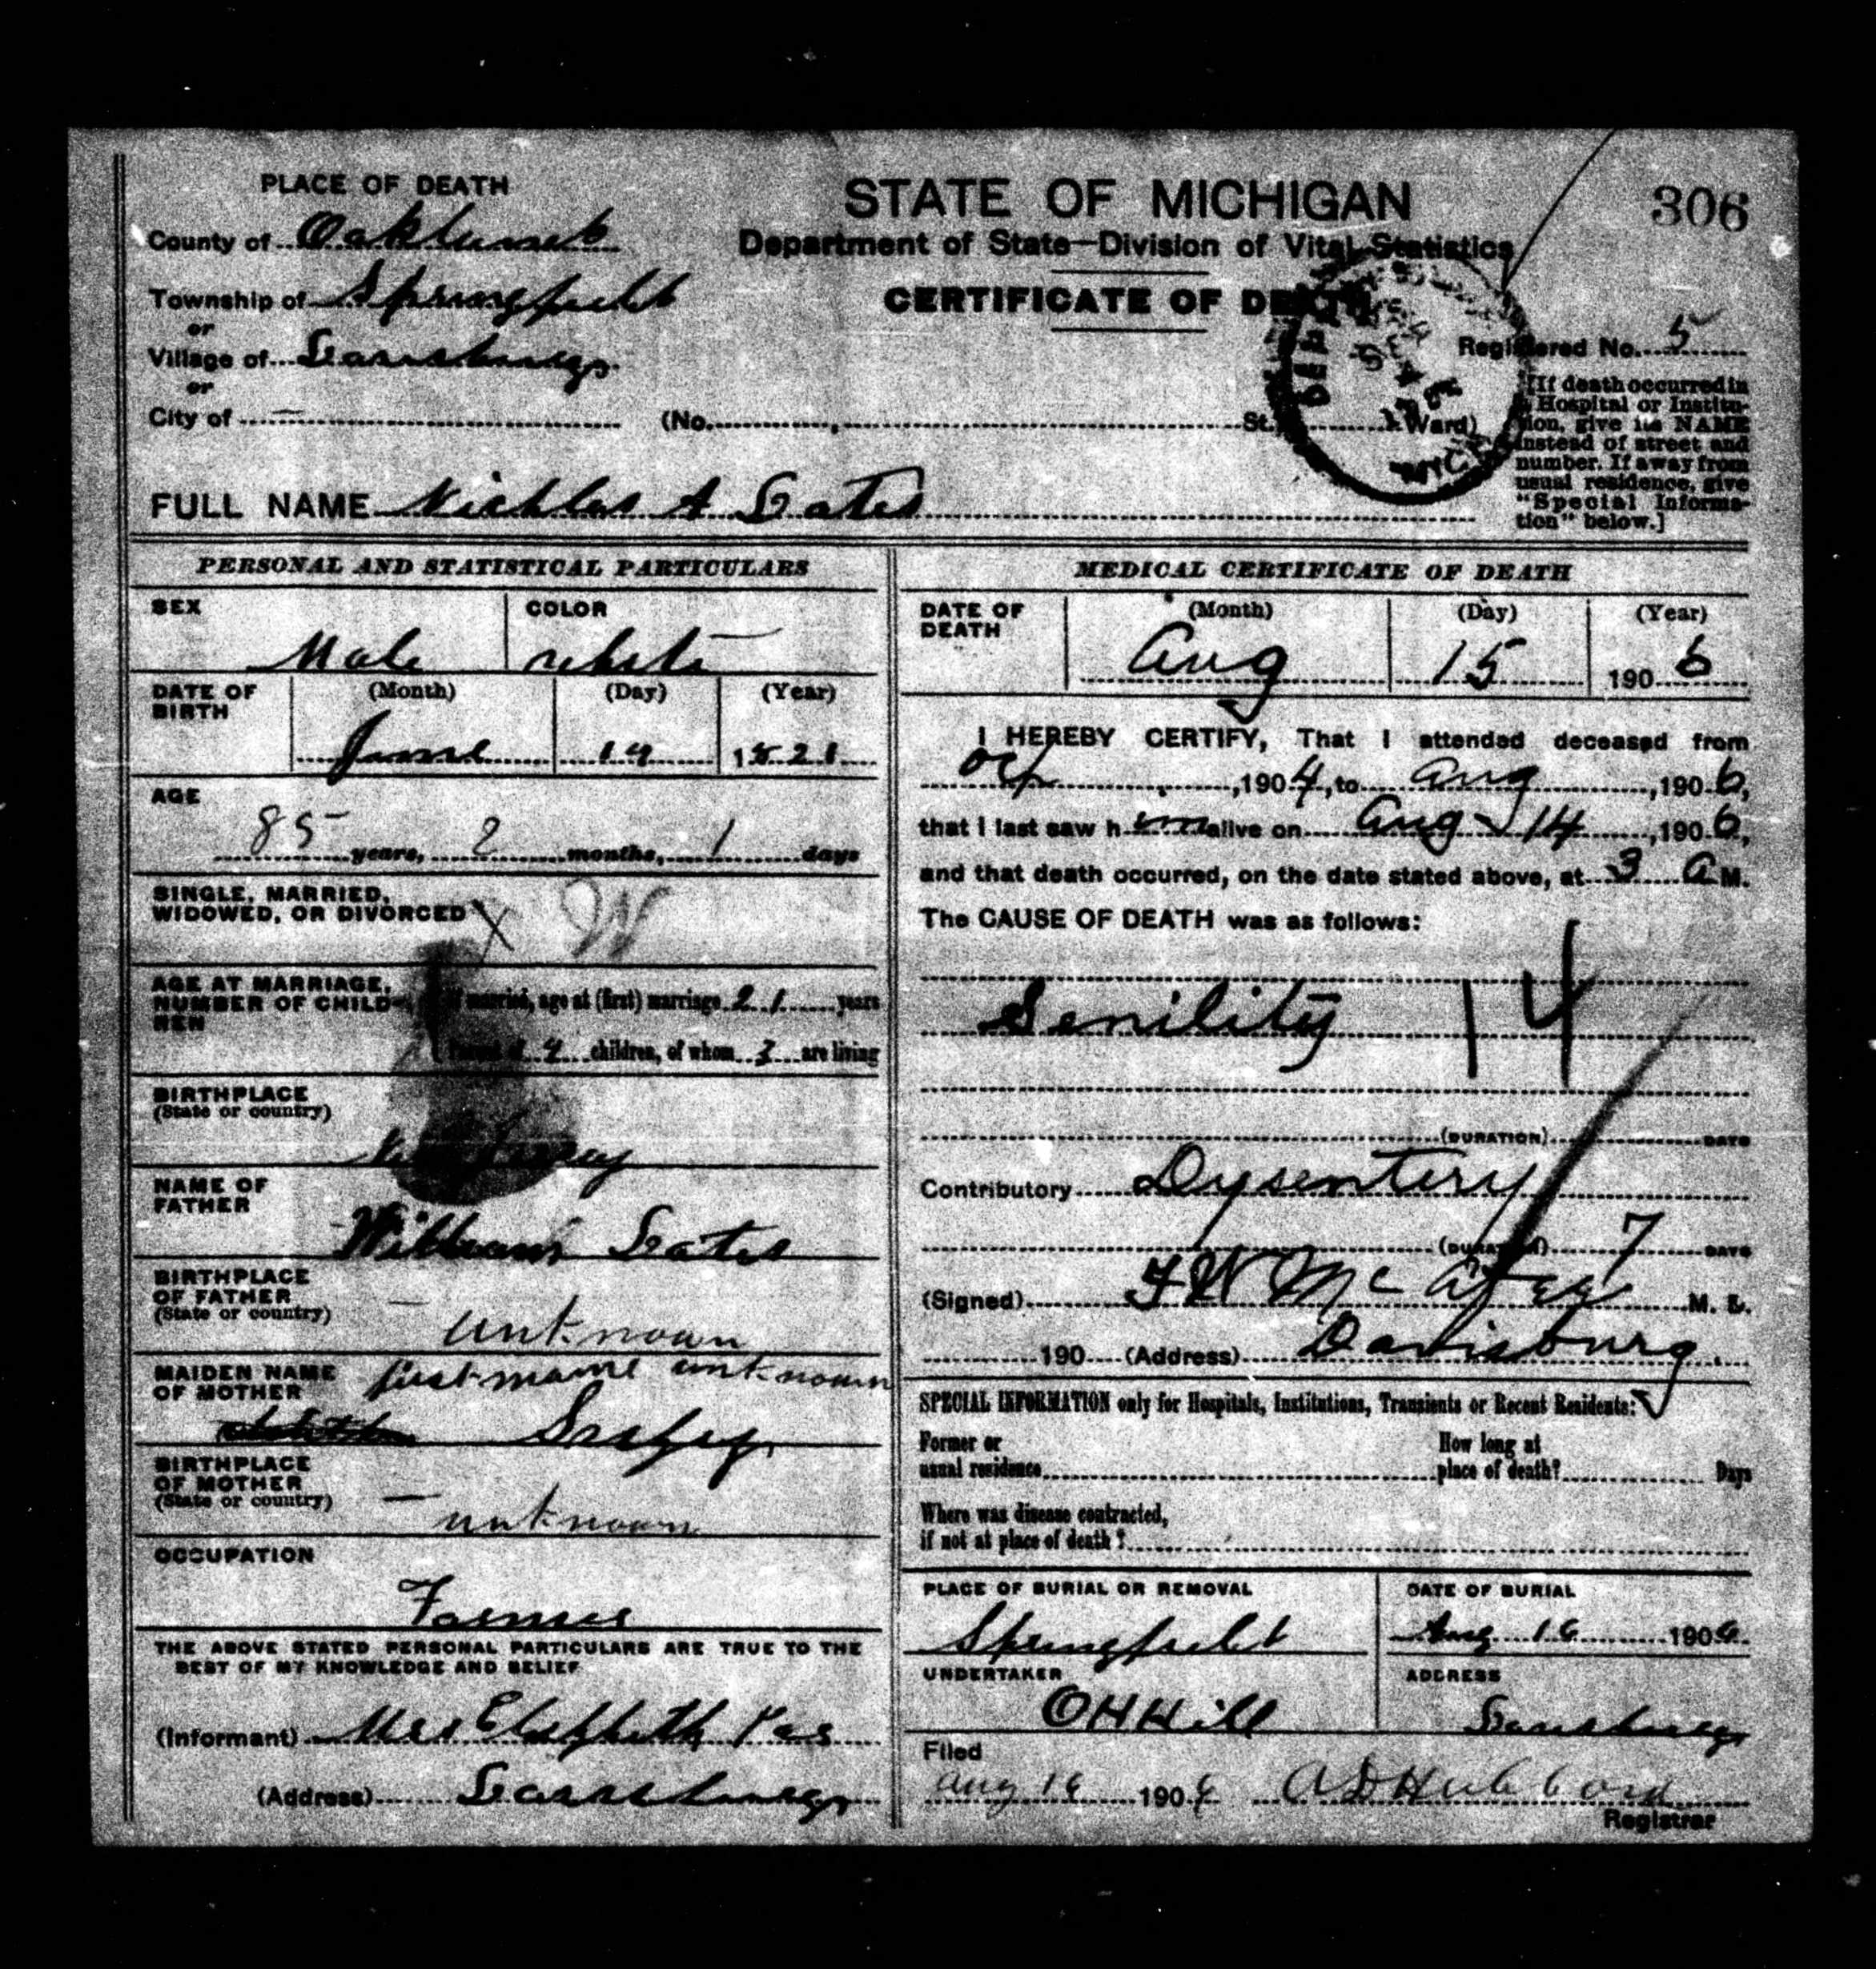 306
PLACE OF DEATH
STATE OF MICHIGAN
Department of State—Division of Vital Statistics
CERTIFICATE OF DEATH
County of Oakland
Township of Springfield
or
Village of Davisburg
or
City of —
(No. , St., Ward)
Registered No. 5
[If death occurred in
a Hospital or Institu-
tion, give its NAME
instead of street and
number. If away from
usual residence, give
"Special Informa-
tion" below.]
FULL NAME Nichlas A
PERSONAL AND STATISTICAL PARTICULARS
SEX
Male
COLOR
white
DATE OF
BIRTH
(Month) (Day) (Year)
June 14 1821
AGE
85 years, 2 months, 1 days
SINGLE, MARRIED,
WIDOWED, OR DIVORCED X W
AGE AT MARRIAGE,
NUMBER OF CHILD-
REN
If married, age at (first) marriage 21 years
Parent of 4 children, of whom 3 are living
BIRTHPLACE
(State or country)
NAME OF
FATHER
William
BIRTHPLACE
OF FATHER
(State or country)
— unknown
MAIDEN NAME
OF MOTHER
first name unknown
BIRTHPLACE
OF MOTHER
(State or country)
— unknown
OCCUPATION
Farmer
THE ABOVE STATED PERSONAL PARTICULARS ARE TRUE TO THE
BEST OF MY KNOWLEDGE AND BELIEF
(Informant) Mrs
(Address) Davisburg
MEDICAL CERTIFICATE OF DEATH
DATE OF
DEATH
(Month) (Day) (Year)
Aug 15 1906
I HEREBY CERTIFY, That I attended deceased from
Oct , 1904, to Aug , 1906,
that I last saw him alive on Aug 14 , 1906,
and that death occurred, on the date stated above, at 3 A M.
The CAUSE OF DEATH was as follows:
Senility 14
(DURATION) DAYS
Contributory Dysentery
(DURATION) 7 DAYS
(Signed) M. D.
190 (Address) Davisburg
SPECIAL INFORMATION only for Hospitals, Institutions, Transients or Recent Residents:
Former or
usual residence
How long at
place of death? Days
Where was disease contracted,
if not at place of death?
PLACE OF BURIAL OR REMOVAL
Springfield
DATE OF BURIAL
Aug 16 1906
UNDERTAKER
O H Hill
ADDRESS
Davisburg
Filed
Aug 16 1906 A D Hubbard
Registrar